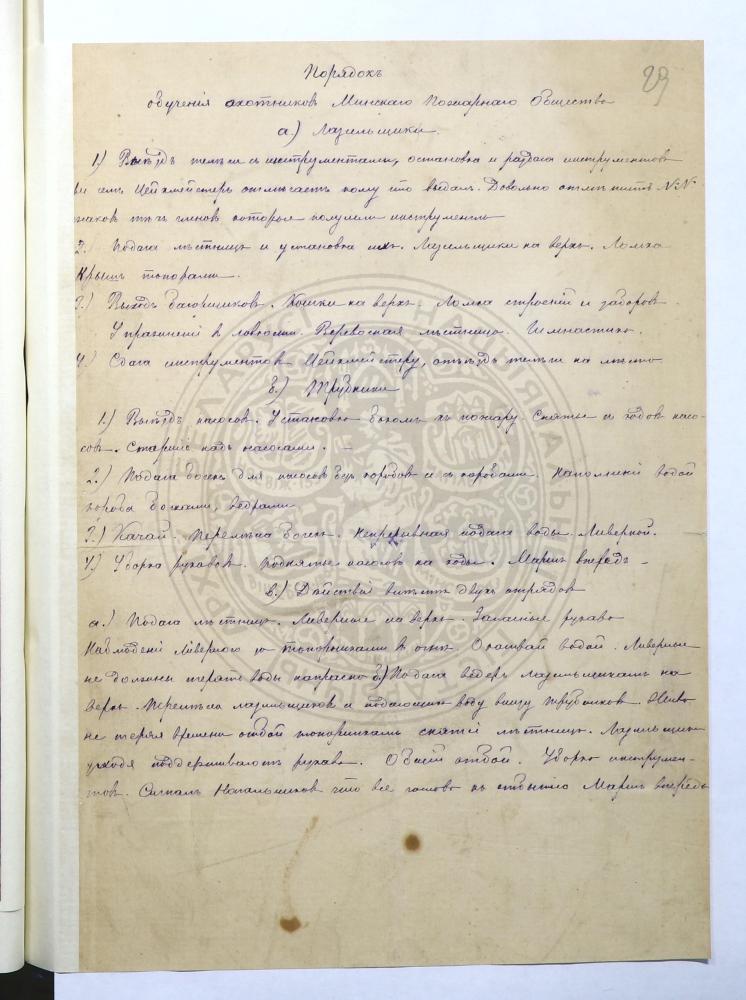 29
Порядокъ
обученія охотниковъ Минскаго Пожарнаго Общества
а.) Лазельщики.
1.) Выѣздъ телѣги съ инструментами, остановка и раздача инструментовъ
Цейхмейстеръ отмѣчаетъ кому что выдалъ. Довольно отмѣтить №№
знаковъ тѣхъ членовъ которые получили инструменты
2.) Подача лѣстницъ и установка ихъ. Лазельщики на верхъ. Ломка
Крышъ топорами.
3.) Выходъ багорщиковъ. Кошки на верхъ. Ломка строеній и заборовъ.
Упражненій в ловкости. Веревочная лѣстница. Гимнастика.
4.) Сдача инструментовъ Цейхмейстеру, отъѣздъ телѣги на мѣсто
б.) Трубники
1.) Выѣздъ насосовъ. Установка бокомъ къ пожару. Снятіе съ ходовъ насо-
совъ. Старшіе надъ насосами. —
2.) Подача бочекъ для насосовъ безъ коробовъ и съ коробами. Наполненій водой
короба бочками, ведрами
3.) Качай. Перемѣна бочекъ. Непрерывная подача воды. Ливерной.
4.) Уборка рукавовъ. Поднятіе насосовъ на ходы. Маршъ впередъ —
в.) Дѣйствій вмѣстѣ двухъ отрядовъ
а.) Подача лѣстницъ. Ливерные на верхъ. Запасные рукава
Наблюденій ливернаго за топорниками в огнѣ. Окачивай водой. Ливерные
не должны терять воды напрасно б.) Подача ведеръ лазельщикамъ на
верхъ. Перемѣна лазельщиковъ и подающихъ воду внизу трубниковъ.
не теряя времени отбой топорникамъ снятій лѣстницъ. Лазельщики
уходя поддерживаютъ рукава. Общій отбой. Уборка инструмен-
товъ. Сигналъ Начальниковъ что все готово къ отбытію Маршъ впередъ